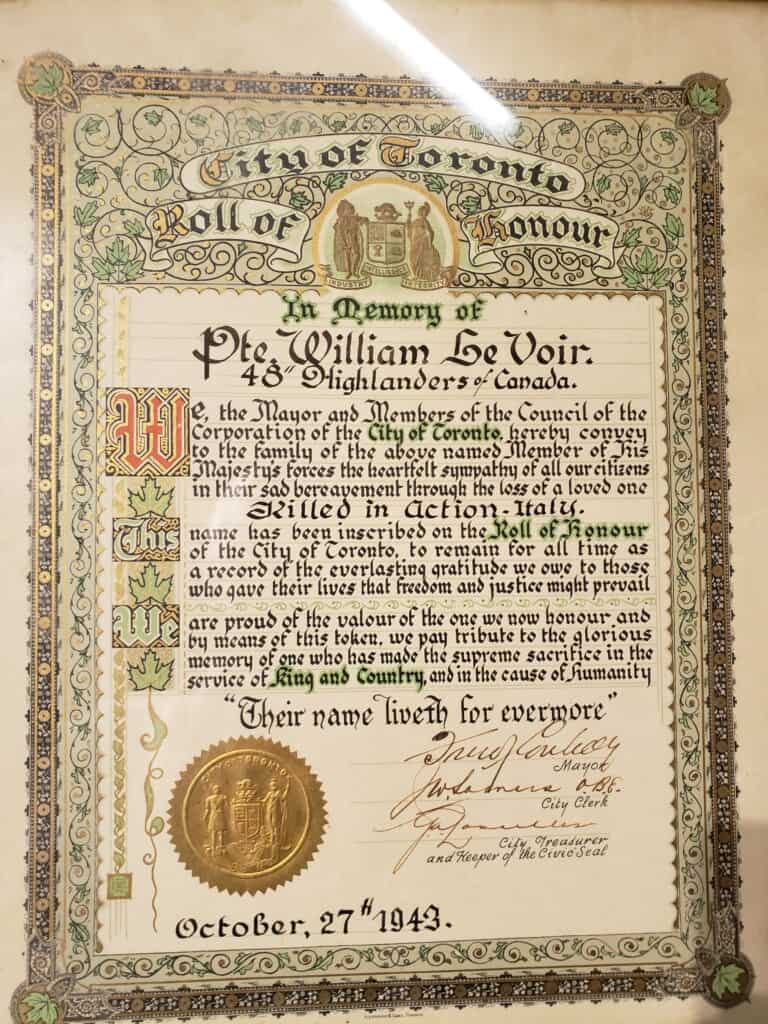 City of Toronto
Roll of Honour
INDUSTRY INTELLIGENCE INTEGRITY
In Memory of
Pte. William Le Voir.
48th Highlanders of Canada.
We, the Mayor and Members of the Council of the
Corporation of the City of Toronto, hereby convey
to the family of the above named Member of His
Majesty's forces the heartfelt sympathy of all our citizens
in their sad bereavement through the loss of a loved one
Killed in Action-Italy.
This name has been inscribed on the Roll of Honour
of the City of Toronto, to remain for all time as
a record of the everlasting gratitude we owe to those
who gave their lives that freedom and justice might prevail
We are proud of the valour of the one we now honour, and
by means of this token, we pay tribute to the glorious
memory of one who has made the supreme sacrifice in the
service of King and Country, and in the cause of Humanity
"Their name liveth for evermore"
Fred J Conboy
Mayor
J W Somers O.B.E.
City Clerk
City Treasurer
and Keeper of the Civic Seal
TORONTO
October, 27th 1943.